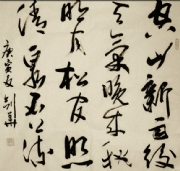 空山新雨後
天氣晚来秋
明月松间照
清泉石上流
庚寅夏